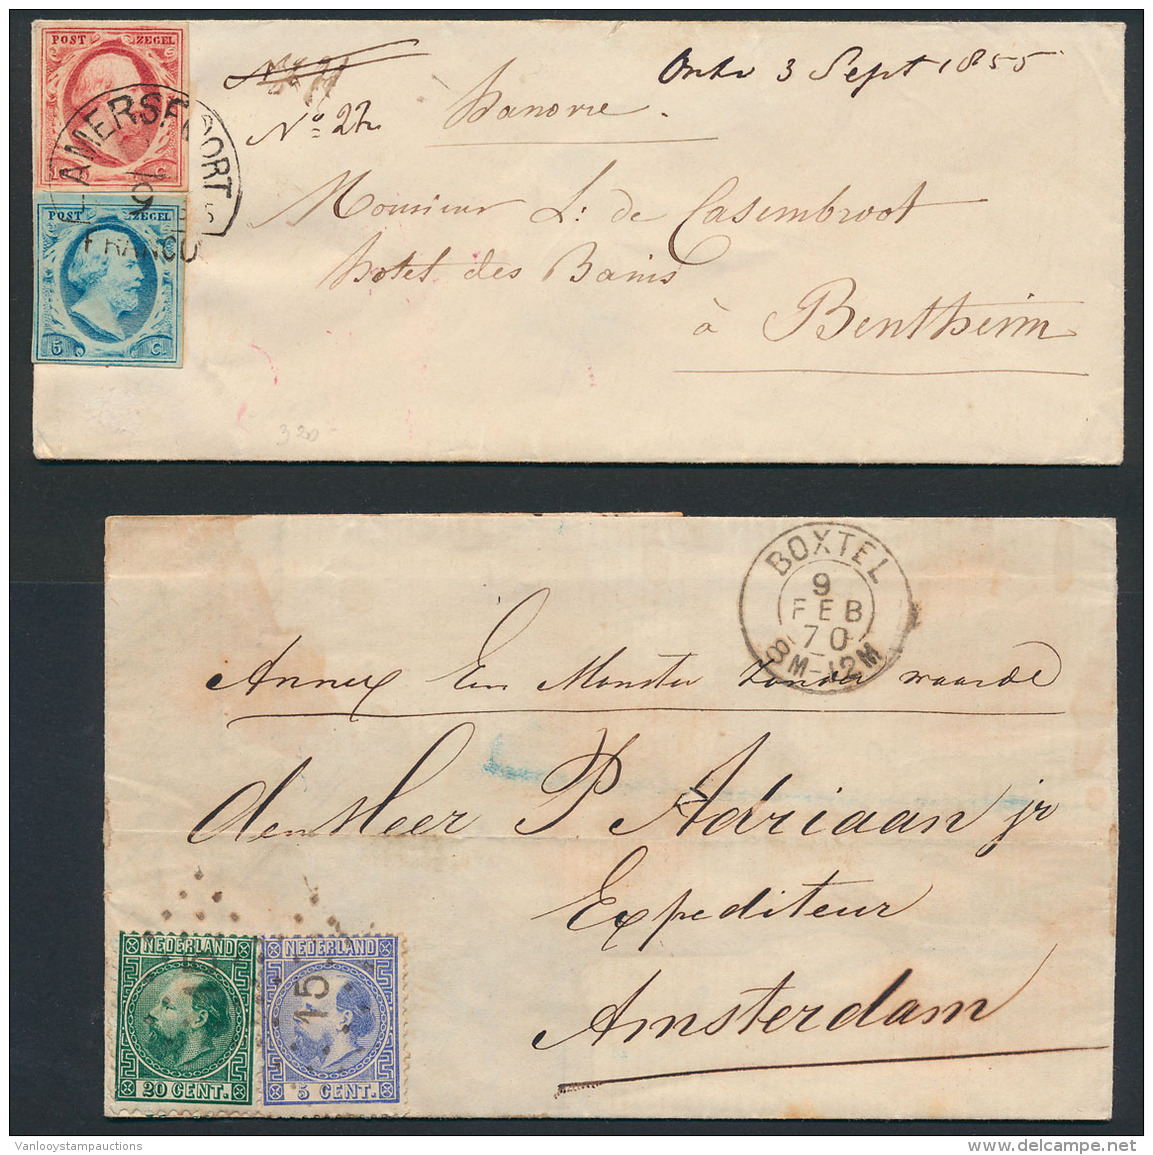 POST ZEGEL
10 C.
AMERSFOORT
9
FRANCO
POST ZEGEL
5 C.
Nº 22
Hanovre.
3 Sept 1855
Monsieur L: de Casembroot
hotel des Bains
à Bentheim
320
BOXTEL
9
FEB
70
8M-12M
Annex Een Monster zonder waarde
den Heer P Adriaan jr
Expediteur
Amsterdam
NEDERLAND
20 CENT.
NEDERLAND
15
5 CENT.
Vanlooystampauctions
delcampe.net